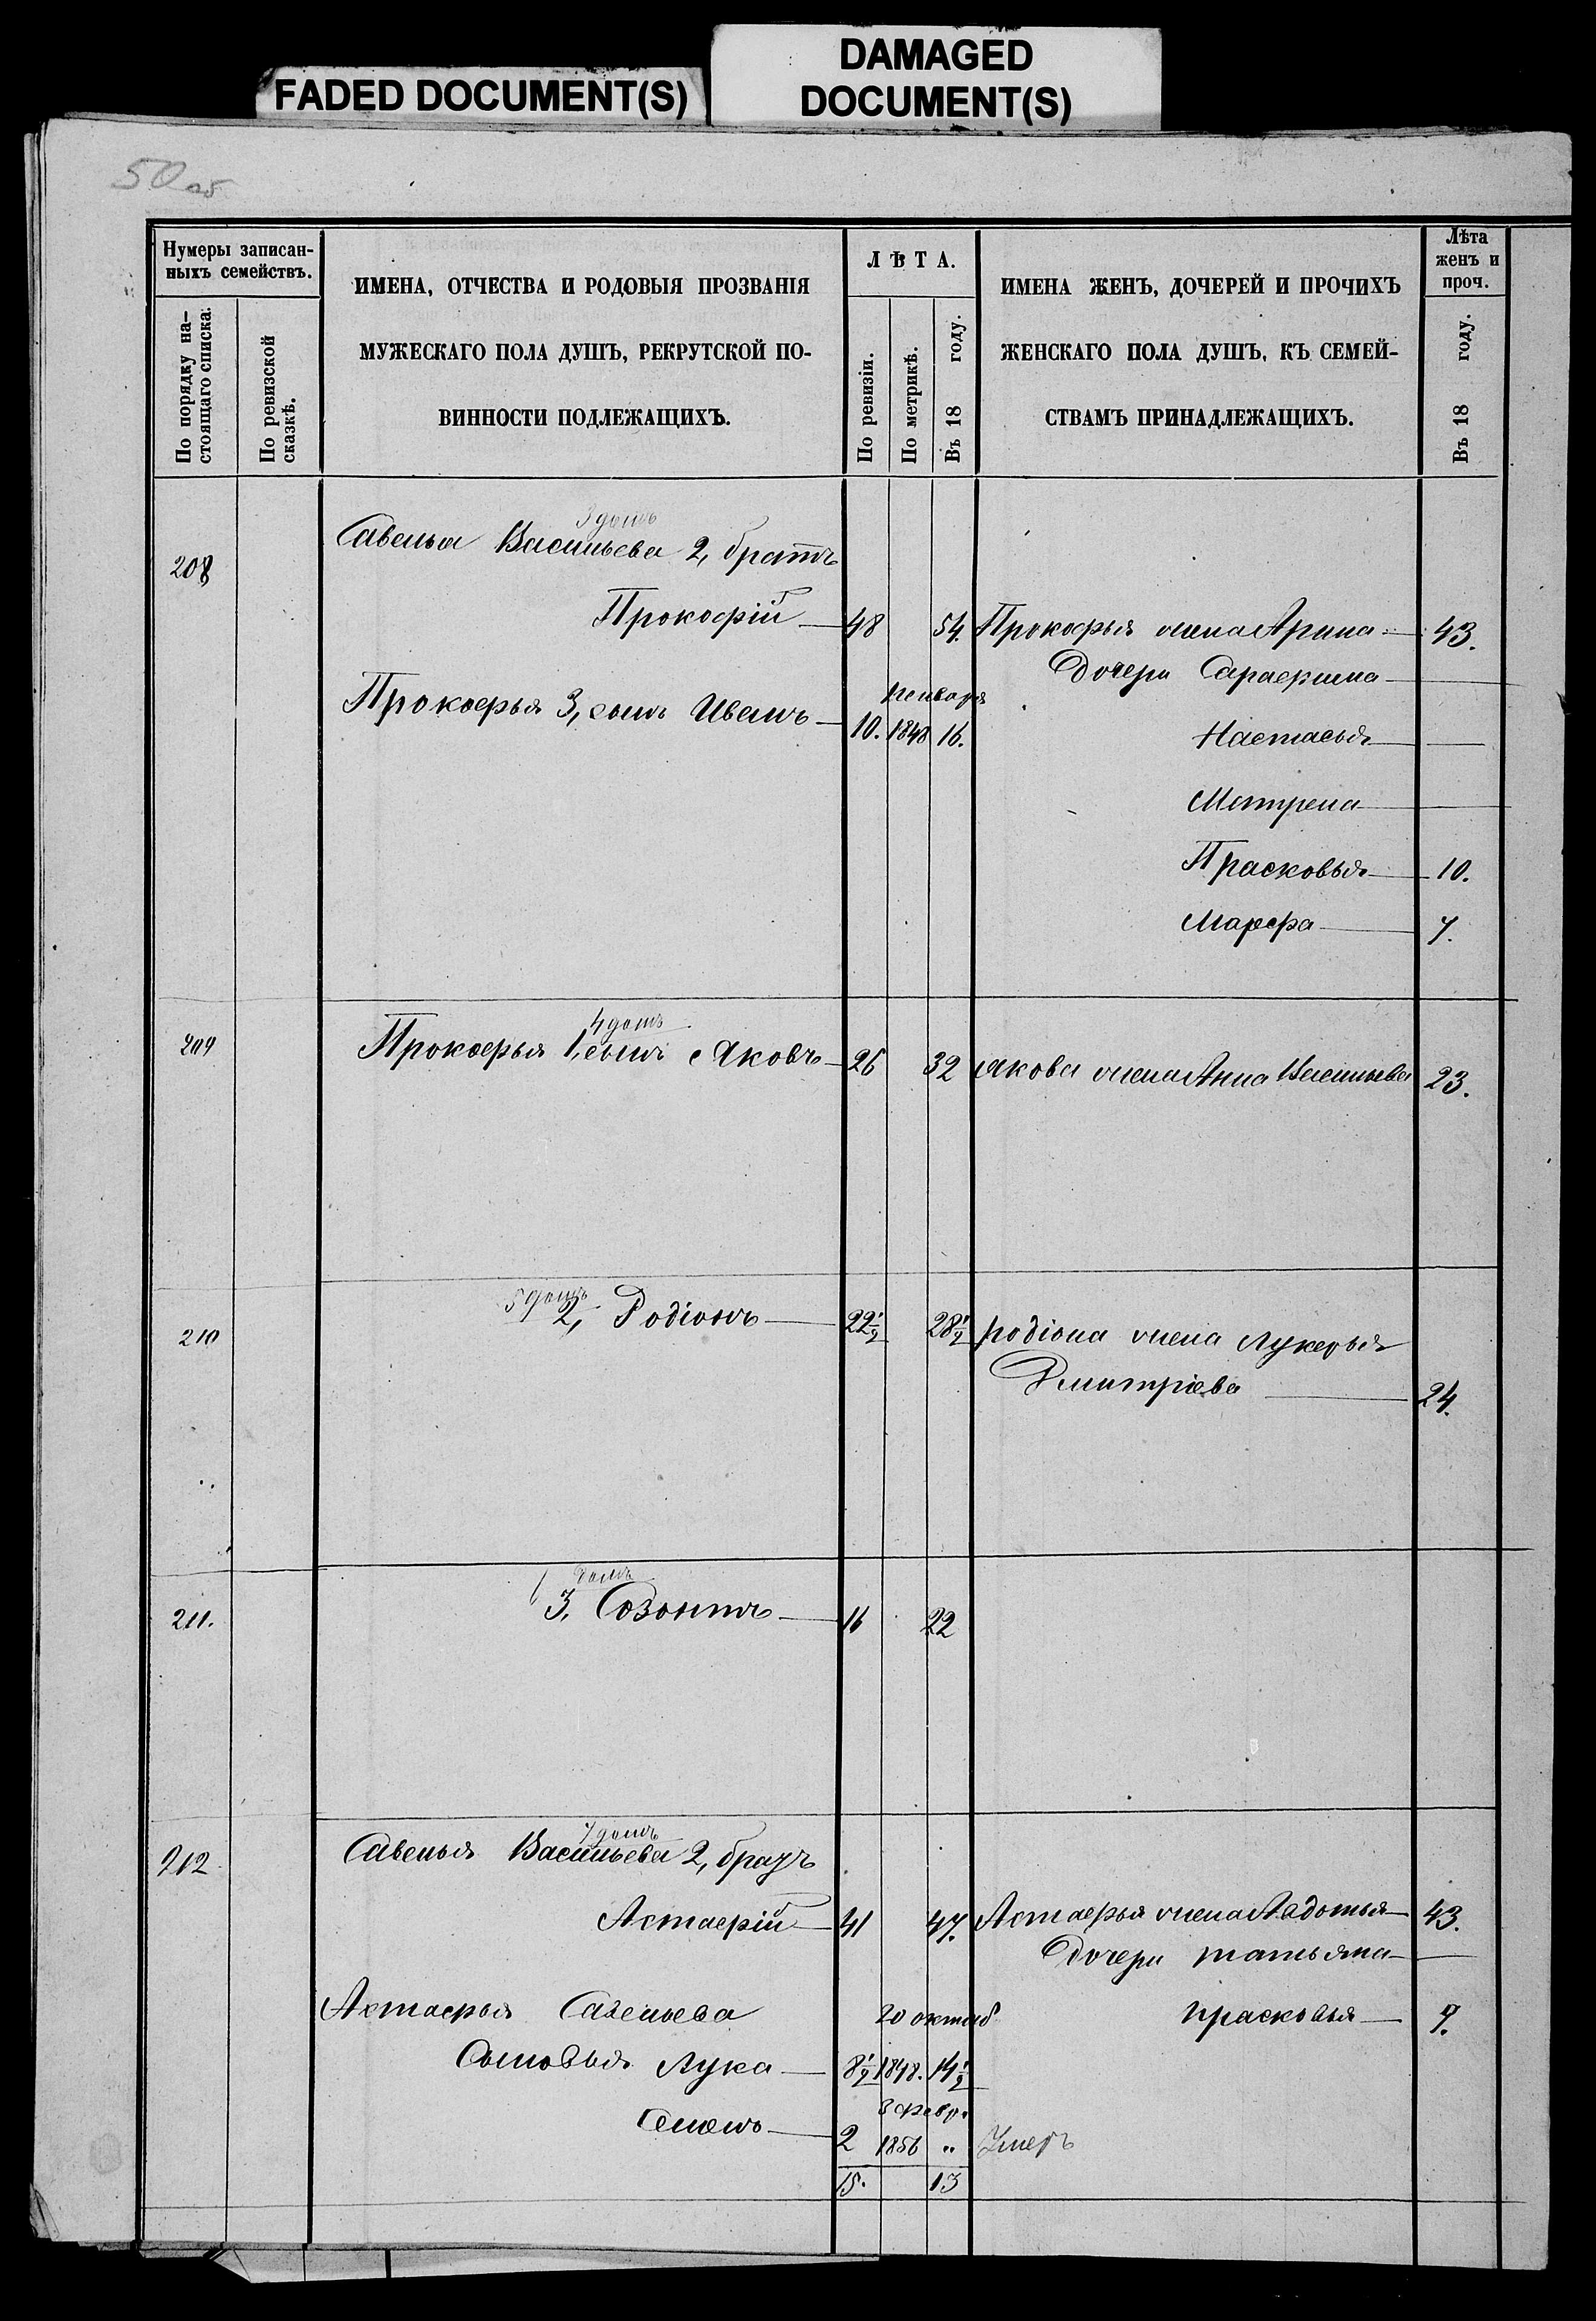 FADED DOCUMENT(S)
DAMAGED
DOCUMENT(S)
50 об
Нумеры записан-
ныхъ семействъ.
По порядку на-
стоящаго списка.
По ревизской
сказкѣ.
ИМЕНА, ОТЧЕСТВА И РОДОВЫЯ ПРОЗВАНІЯ
МУЖЕСКАГО ПОЛА ДУШЪ, РЕКРУТСКОЙ ПО-
ВИННОСТИ ПОДЛЕЖАЩИХЪ.
ЛѢТА.
По ревизіи.
По метрикѣ.
Въ 18 году.
ИМЕНА ЖЕНЪ, ДОЧЕРЕЙ И ПРОЧИХЪ
ЖЕНСКАГО ПОЛА ДУШЪ, КЪ СЕМЕЙ-
СТВАМЪ ПРИНАДЛЕЖАЩИХЪ.
Лѣта
женъ и
проч.
Въ 18 году.
3 домъ
208 Савелья Васильева 2, братъ
Прокофій 48 54. Прокофья жена Арина 43.
Дочери Сарафима
января
Прокофья 3, сынъ Иванъ 10. 1848 16.
Настасья
Матрена
Прасковья 10.
Марфа 7.
4 домъ
209 Прокофья 1, сынъ Яковъ 26 32 Якова жена Анна Васильева 23.
5 домъ
210 2, Родіонъ 22 1/2 28 1/2 Родіона жена Лукерья
Дмитріева 24.
домъ
211. 3, Созонтъ 16 22
7 домъ
212 Савелья Васильева 2, братъ
Астафій 41 47. Астафья жена Авдотья 43.
Дочери Татьяна
Астафья Савельева 20 октяб Прасковья 7.
Сыновья Лука 8 1/2 1848. 14 1/2
3 февр.
Семенъ 2 1856 „ Умеръ
15. 13